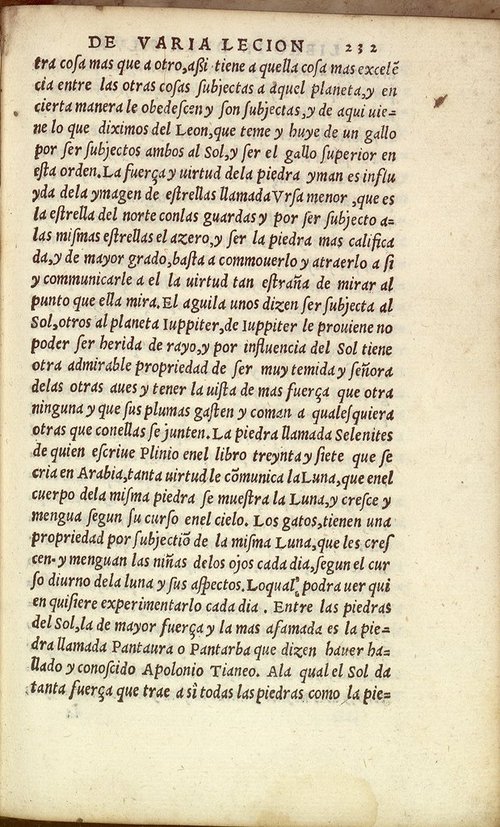 DE VARIA LECION 232
tra cosa mas que a otro,aßi tiene a quella cosa mas excelẽ
cia entre las otras cosas subjectas a aquel planeta,y en
cierta manera le obedescen y son subjectas,y de aqui uie=
ne lo que diximos del Leon,que teme y huye de un gallo
por ser subjectos ambos al Sol,y ser el gallo superior en
esta orden.La fuerça y uirtud dela piedra yman es influ
yda dela ymagen de estrellas llamada Vrsa menor ,que es
la estrella del norte conlas guardas y por ser subjecto a=
las mismas estrellas el azero,y ser la piedra mas califica
da,y de mayor grado,basta a commouerlo y atraerlo a si
y communicarle a el la uirtud tan estraña de mirar al
punto que ella mira.El aguila unos dizen ser subjecta al
Sol,otros al planeta Iuppiter,de Iuppiter le prouiene no
poder ser herida de rayo,y por influencia del Sol tiene
otra admirable propriedad de ser muy temida y señora
delas otras aues y tener la uista de mas fuerça que otra
ninguna y que sus plumas gasten y coman a qualesquiera
otras que conellas se junten.La piedra llamada Selenites
de quien escriue Plinio enel libro treynta y siete que se
cria en Arabia,tanta uirtud le cõmunica la Luna,que enel
cuerpo dela misma piedra se muestra la Luna,y cresce y
mengua segun su curso enel cielo. Los gatos,tienen una
propriedad por subjectiõ de la misma Luna,que les cres
cen y menguan las niñas delos ojos cada dia,segun el cur
so diurno dela luna y sus aspectos.Loqual podra uer qui
en quisiere experimentarlo cada dia . Entre las piedras
del Sol,la de mayor fuerça y la mas afamada es la pie=
dra llamada Pantaura o Pantarba que dizen hauer ha=
llado y conoscido Apolonio Tianeo. Ala qual el Sol da
tanta fuerça que trae a si todas las piedras como la pie=